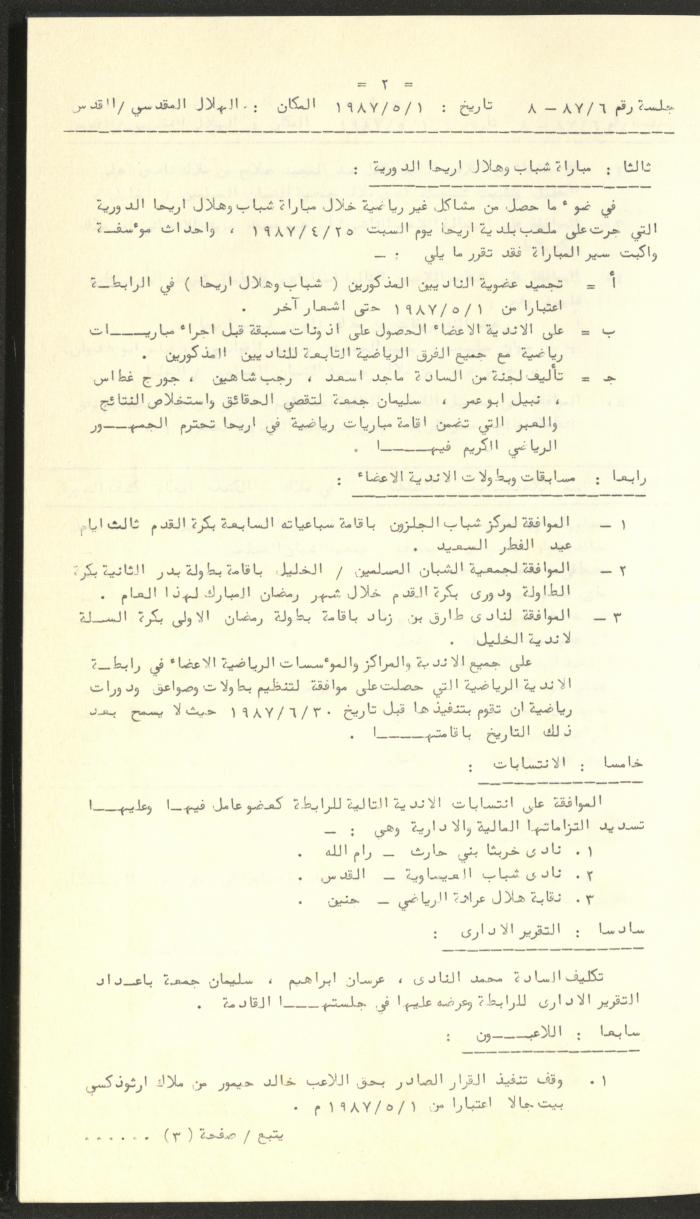 = ٢ =
جلسة رقم ٨٧/٦ – ٨ تاريخ : ١٩٨٧/٥/١ المكان : الهلال المقدسي / القدس
ثالثا : مباراة شباب وهلال اريحا الدورية :
في ضوء ما حصل من مشاكل غير رياضية خلال مباراة شباب وهلال اريحا الدورية
التي جرت على ملعب بلدية اريحا يوم السبت ١٩٨٧/٤/٢٥ ، واحداث مؤسفـــة
واكبت سير المباراة فقد تقرر ما يلي : –
أ = تجميد عضوية الناديين المذكورين ( شباب وهلال اريحا ) في الرابطــة
اعتبارا من ١٩٨٧/٥/١ حتى اشعار آخر .
ب = على الاندية الاعضاء الحصول على اذونات مسبقة قبل اجراء مباريـــــات
رياضية مع جميع الفرق الرياضية التابعة للناديين المذكورين .
جـ = تأليف لجنة من السادة ماجد اسعد ، رجب شاهين ، جورج غطاس
، نبيل ابو عمر ، سليمان جمعة لتقصي الحقائق واستخلاص النتائج
والعبر التي تضمن اقامة مباريات رياضية في اريحا تحترم الجمهـــور
الرياضي الكريم فيهـــــا .
رابعا : مسابقات وبطولات الاندية الاعضاء :
١ – الموافقة لمركز شباب الجلزون باقامة سباعياته السابعة بكرة القدم ثالث ايام
عيد الفطر السعيد .
٢ – الموافقة لجمعية الشبان المسلمين / الخليل باقامة بطولة بدر الثانية بكرة
الطاولة ودورى بكرة القدم خلال شهر رمضان المبارك لهذا العام .
٣ – الموافقة لنادى طارق بن زياد باقامة بطولة رمضان الاولى بكرة الســلة
لاندية الخليل .
على جميع الاندية والمراكز والمؤسسات الرياضية الاعضاء في رابطــة
الاندية الرياضية التي حصلت على موافقة لتنظيم بطولات وصواعق ودورات
رياضية ان تقوم بتنفيذها قبل تاريخ ١٩٨٧/٦/٣٠ حيث لا يسمح بعــد
ذلك التاريخ باقامتهـــــا .
خامسا : الانتسابات :
الموافقة على انتسابات الاندية التالية للرابطة كعضو عامل فيهــا وعليهـــا
تسديد التزاماتها المالية والادارية وهي : –
١. نادى خربثا بني حارث – رام الله .
٢. نادى شباب العيساوية – القدس .
٣. نقابة هلال عرابة الرياضي – جنين .
سادسا : التقرير الادارى :
تكليف السادة محمد النادى ، عرسان ابراهيم ، سليمان جمعة باعــداد
التقرير الادارى للرابطة وعرضه عليها في جلستهـــــا القادمة .
سابعا : اللاعبــــون :
١. وقف تنفيذ القرار الصادر بحق اللاعب خالد حيمور من ملاك ارثوذكسي
بيت جالا اعتبارا من ١٩٨٧/٥/١ م .
يتبع / صفحة (٣) ......